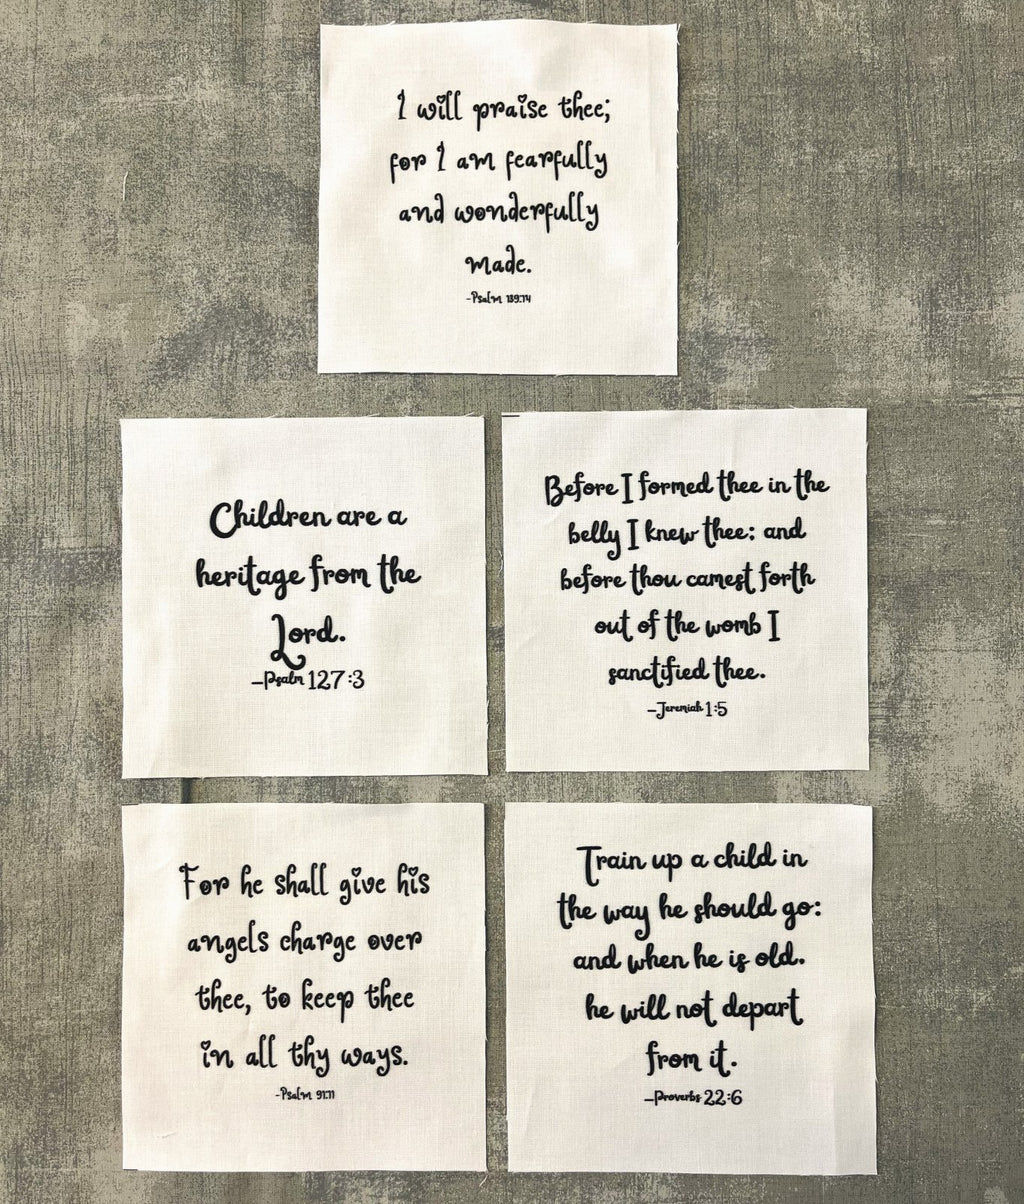 I will praise thee;
for I am fearfully
and wonderfully
made.
-Psalm 139:14
Children are a
heritage from the
Lord.
-Psalm 127:3
Before I formed thee in the
belly I knew thee: and
before thou camest forth
out of the womb I
sanctified thee.
-Jeremiah 1:5
For he shall give his
angels charge over
thee, to keep thee
in all thy ways.
-Psalm 91:11
Train up a child in
the way he should go:
and when he is old.
he will not depart
from it.
-Proverbs 22:6